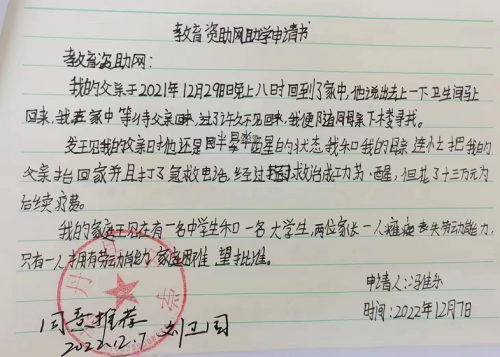 教育资助网助学申请书
教育资助网：
我的父亲于2021年12月29日晚上八时回到了家中，他说出去上一下卫生间马上
回来，我在家中等待父亲回来，过了许久不见回来，我便陪同母亲下楼寻找。
发现我的父亲时他还是因半昏半醒的状态，我和我的母亲连忙把我的
父亲抬回家并且打了急救电话，经过救治成功苏醒，但花了十三万元为
后续疗费。
我的家庭现在有一名中学生和一名大学生，两位家长一人瘫痪丧失劳动能力，
只有一人拥有劳动能力家庭困难，望批准。
申请人：冯佳乐
时间：2022年12月7日
同意推荐 刘卫国
2022.12.7